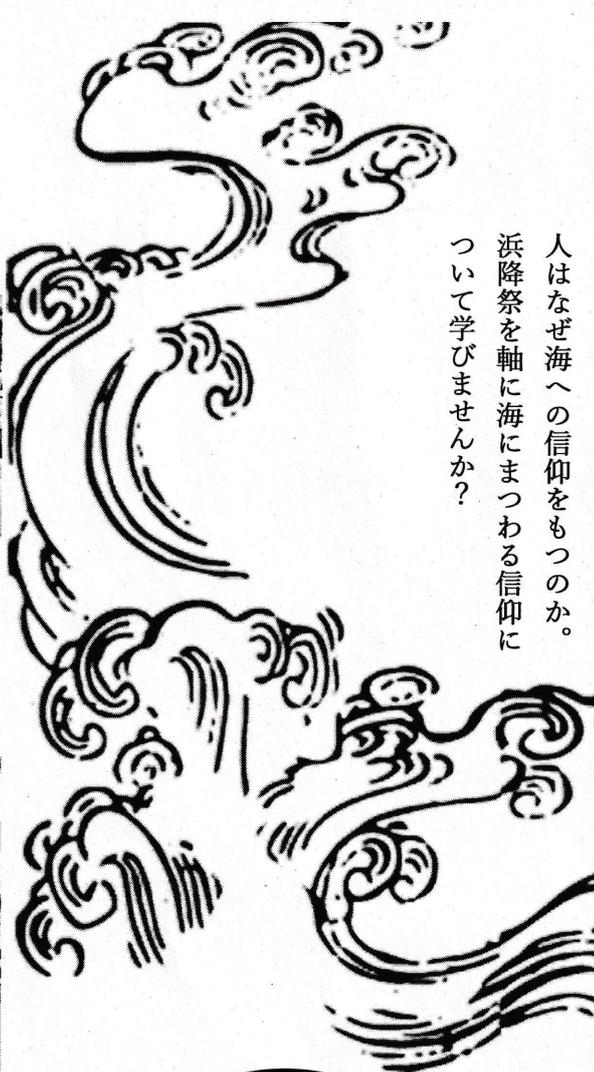 人はなぜ海への信仰をもつのか。
浜降祭を軸に海にまつわる信仰に
ついて学びませんか？